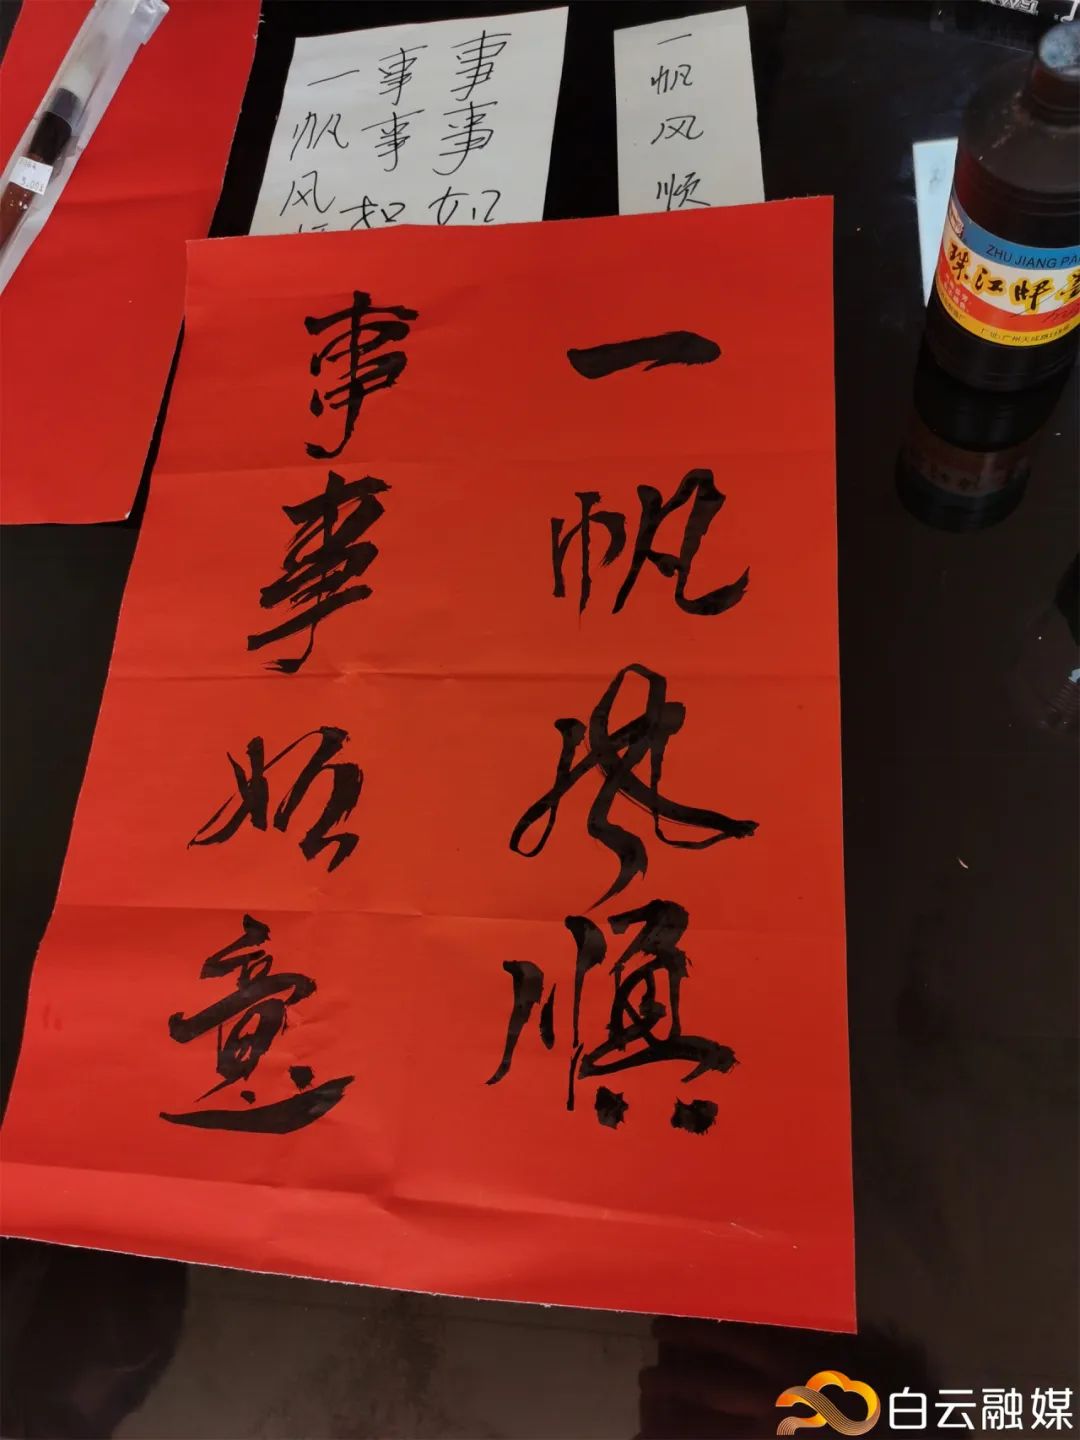 一帆风顺
事事如意
事事如
事事如
一帆风
一帆风顺
ZHU JIANG PA
珠江牌墨
5.00
白云融媒